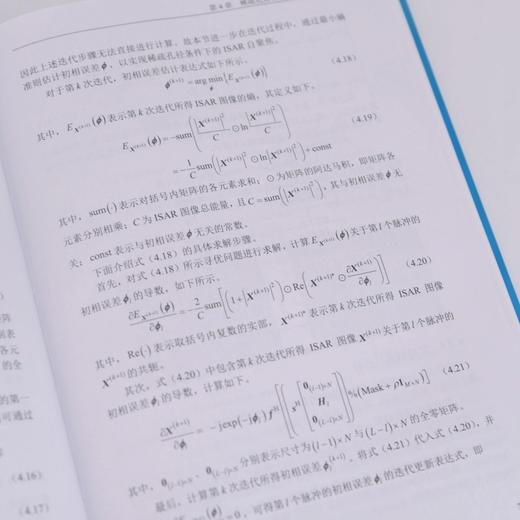 第4章
因此上述迭代步骤无法直接进行计算。故本节进一步在迭代过程中，通过最小熵
准则估计初相误差ϕ，以实现稀疏孔径条件下的 ISAR 自聚焦。
对于第 k 次迭代，初相误差估计表达式如下所示。
ϕ^(k+1) = arg min_ϕ {E_X^(k+1)(ϕ)} (4.18)
其中，E_X^(k+1)(ϕ)表示第 k 次迭代所得 ISAR 图像的熵，其定义如下。
E_X^(k+1)(ϕ) = −sum(|X^(k+1)|²/C ⊙ ln |X^(k+1)|²/C) (4.19)
= −1/C sum(|X^(k+1)|² ⊙ ln|X^(k+1)|²) + const
其中，sum(·)表示对括号内矩阵的各元素求和；⊙为矩阵的阿达马积，即矩阵各
元素分别相乘；C 为 ISAR 图像总能量，且 C = sum(|X^(k+1)|²)，其与初相误差ϕ无
关；const 表示与初相误差ϕ无关的常数。
下面介绍式（4.18）的具体求解步骤。
首先，对式（4.18）所示寻优问题进行求解，计算 E_X^(k+1)(ϕ)关于第 l 个脉冲的
初相误差ϕ_l的导数，如下所示。
∂E_X^(k+1)(ϕ)/∂ϕ_l = −2/C sum[(1+ln|X^(k+1)|²) ⊙ Re(X^(k+1)* ⊙ ∂X^(k+1)/∂ϕ_l)] (4.20)
其中，Re(·)表示取括号内复数的实部，X^(k+1)*表示第 k 次迭代所得 ISAR 图像
X^(k+1)的共轭。
其次，式（4.20）中包含第 k 次迭代所得 ISAR 图像 X^(k+1)关于第 l 个脉冲的
初相误差ϕ_l的导数，计算如下。
∂X^(k+1)/∂ϕ_l = −jexp(−jϕ_l) f^H [(s^H [0_(l−1)×N H_l 0_(L−l)×N]) %(Mask + ρ1_M×N)] (4.21)
其中，0_(l−1)×N、0_(L−l)×N分别表示尺寸为(l−1)×N 与(L−l)×N 的全零矩阵。
最后，计算第 k 次迭代所得初相误差ϕ_l^(k+1)。将式（4.21）代入式（4.20），并
= 0，可得第 l 个脉冲的初相误差ϕ_l的迭代更新表达式，即
矩阵
别表
各元
的全
的第一
可通过
(4.16)
(4.17)